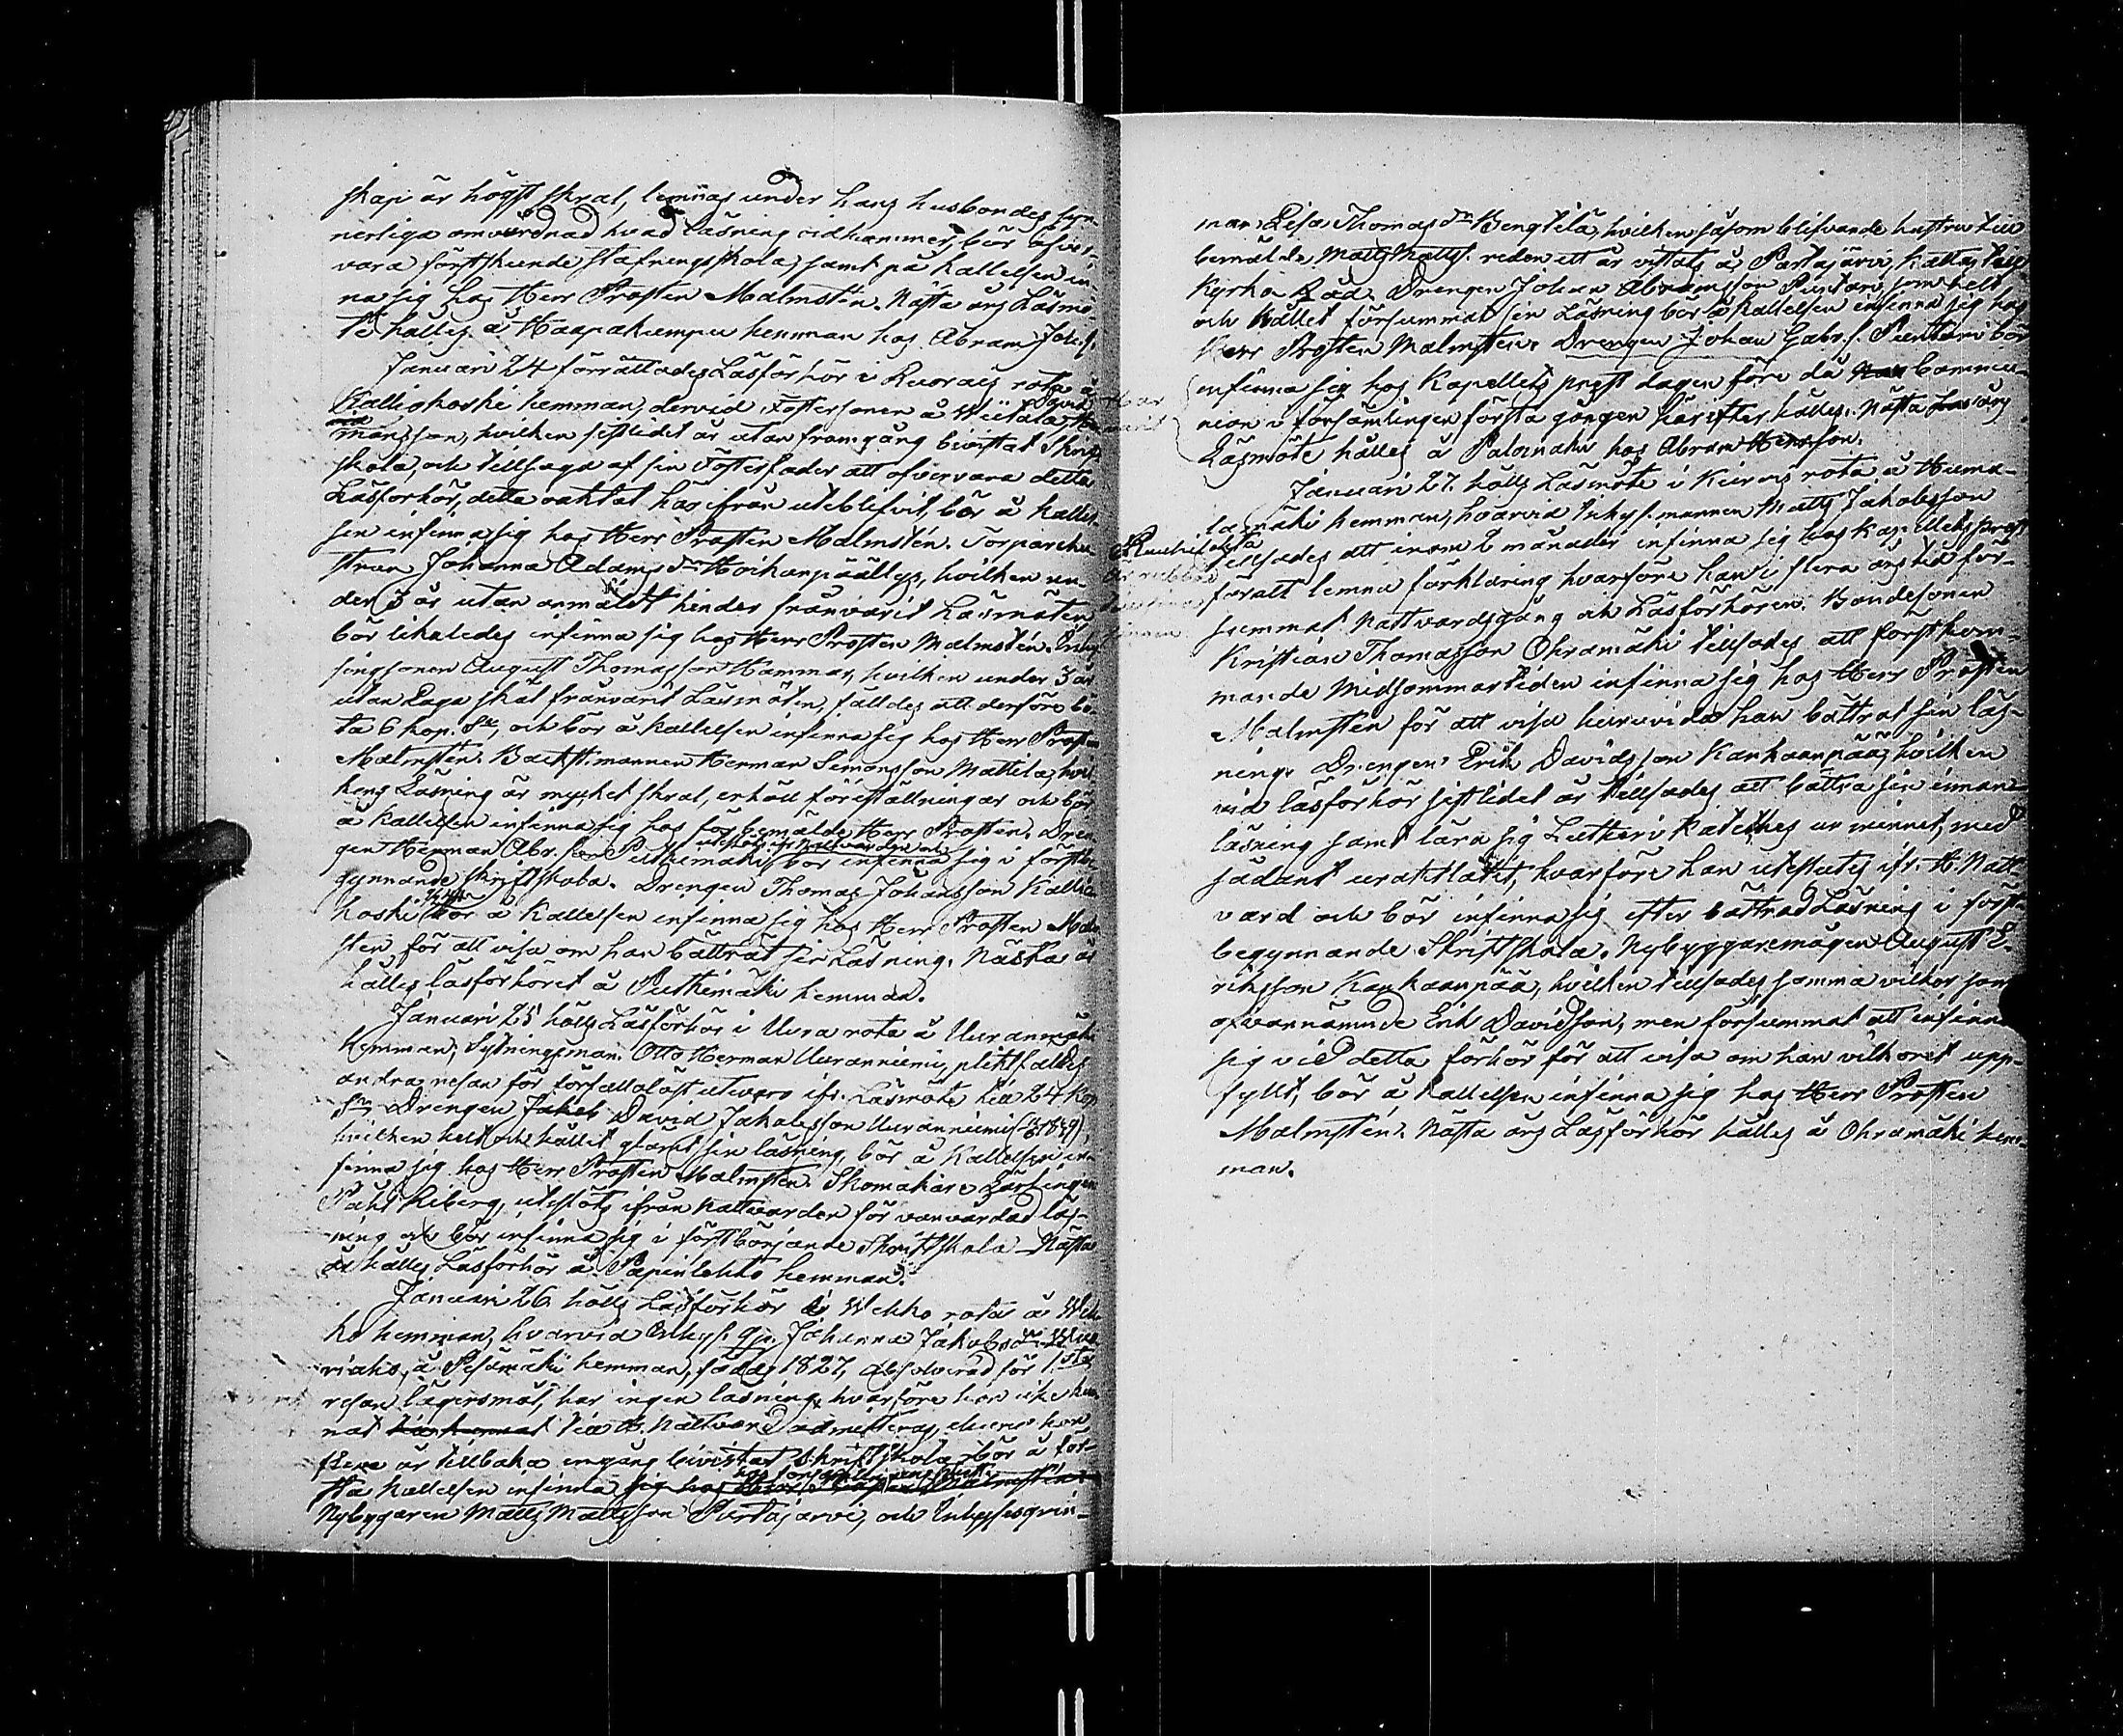 skap är högst skral, lemnas under hans husbondes syn-
nerliga omvårdnad hvad läsning vidkommer, bör öfver-
vara förstskeende stafningsskola, samt på kallelsen in-
na sig hos Herr Prosten Malmstén. Nästa års Läsmö-
te hålles å Haapakumpu hemman hos Abram Johs.
Januari 24 förrättades Läsförhör i Kuoraës rota å
Kalliokoski hemman, dervid Fostersonen å Wiitala,
mansson, hvilken sistlidet år utan framgång bivistat Skrift
skola, och tillsagd af sin Fosterfader att öfvervara detta
Läsförhör, detta oaktat här ifrån uteblifvit, bör å kallel-
sen infinna sig hos Herr Prosten Malmstén. Torparehu-
strun Johanna Adams dr Hoikanpäällys, hvilken un-
der 3 år utan anmäldt hinder frånvarit Läsmöten
bör likaledes infinna sig hos Herr Prosten Malmstén.
singsonen August Thomasson Hammar, hvilken under 3 år
utan Laga skäl frånvarit Läsmöten, fälldes att derföre bö-
ta 6 kop. Slr, och bör å kallelsen infinna sig hos Herr Prosten
Malmstén. Backstumannen Herman Simonsson Mattila, hvil-
kens Läsning är mycket skral, erhöll föreställningar och bör
å kallelsen infinna sig hos förbemälde Herr Prosten. Dren-
utestötes ifr. nattvarden och
gen Herman Abr. son Puttimäki bör infinna sig i först be-
gynnande skriftskola. Drengen Thomas Johansson Kallio-
koski bör å Kallelsen infinna sig hos Herr Prosten Malm
sten för att visa om han bättrat sin Läsning. Nästa år
hålles läsförhöret å Puthimäki hemman.
Januari 25 hölls Läsförhör i Uura rota å Uuranmäki
Hemman; Sytningsman Otto Herman Uuranniemi, pliktfälldes
andra resan för förfallolöst utevaro ifr. Läsmöte till 24 kop
Slr. Drengen Jakob David Jakobsson Uuranniemi
hvilken helt och hållit glömt sin läsning, bör å Kallelsen in-
finna sig hos Herr Prosten Malmstén. Skomakare Lärlingen
Påhl Riberg, utestötes ifrån Nattvarden för vanvårdad läs-
ning och bör infinna sig i förstbörjande Skriftskola. Nästa
år hålles Läsförhör å Papinlehto hemman.
Januari 26 hölls Läsförhör i Wehko rota å Weh
ko hemman, hvarvid Inhys. qv. Johanna Jakobs dr
å Pesämäki hemman, född 1827, absolverad för 1sta
resan lägersmål, har ingen läsning, hvarföre hon icke kun-
nat till H. Nattvard admitteras, ehuru hon
flera år tillbaka engång bivistat Skriftskola, bör å för-
sta kallelsen infinna sig hos Herr Prosten Malmstén
Nybyggaren Matts Mattsson Purtajärvi, och Inhysesqvin-
nan Lisa Thomas dr Bengtilä, hvilken såsom blifvande hustru till
bemälde Matts Matts. redan ett år vistats å Purtajärvi, kallas till
Kyrko Råd. Drengen Johan Abramsson Puntari, som helt
och hållet försummat sin Läsning bör å kallelsen infinna sig hos
Herr Prosten Malmsten. Drengen Johan Gabr. s. Puntari bör
infinna sig hos Kapellets prest dagen före då commu-
nion i församlingen första gången härefter hålles. Nästa års
Läsmöte hålles å Palomäki hos Abram Hermsson.
Januari 27. hölls Läsmöte i Kuivas rota å Huma-
lamäki hemman, hvarvid Inhys. mannen Matts Jakobsson
tillsades att inom 2 månader infinna sig hos Kapellets prest
för att lemna förklaring hvarföre han i flera års tid för-
summat Nattvardsgång och Läsförhören. Bondesonen
Kristian Thomasson Ohramäki tillsades att förstkom-
mande Midsommartiden infinna sig hos Herr Prosten
Malmsten för att visa huruvida han bättrat sin läs-
ning. Drengen Erik Davidsson Kankaanpää, hvilken
vid läsförhör sistlidet år tillsades att bättra sin innan-
läsning samt lära sig Lutheri Katekes ur minnet, med
sådant uraktlåtit, hvarföre han utslutes ifr. H. Natt-
vard och bör infinna sig efter bättrad Läsning i först-
begynnande Skriftskola. Nybyggaremågen August E-
riksson Kankaanpää, hvilken tillsades samma vilkor som
ofvannämnde Erik Davidson, men försummat att infinna
sig vid detta förhör för att visa om han vilkoret upp-
fyllt, bör å kallelsen infinna sig hos Herr Prosten
Malmstén. Nästa års Läsförhör hålles å Ohramäki hem-
man.